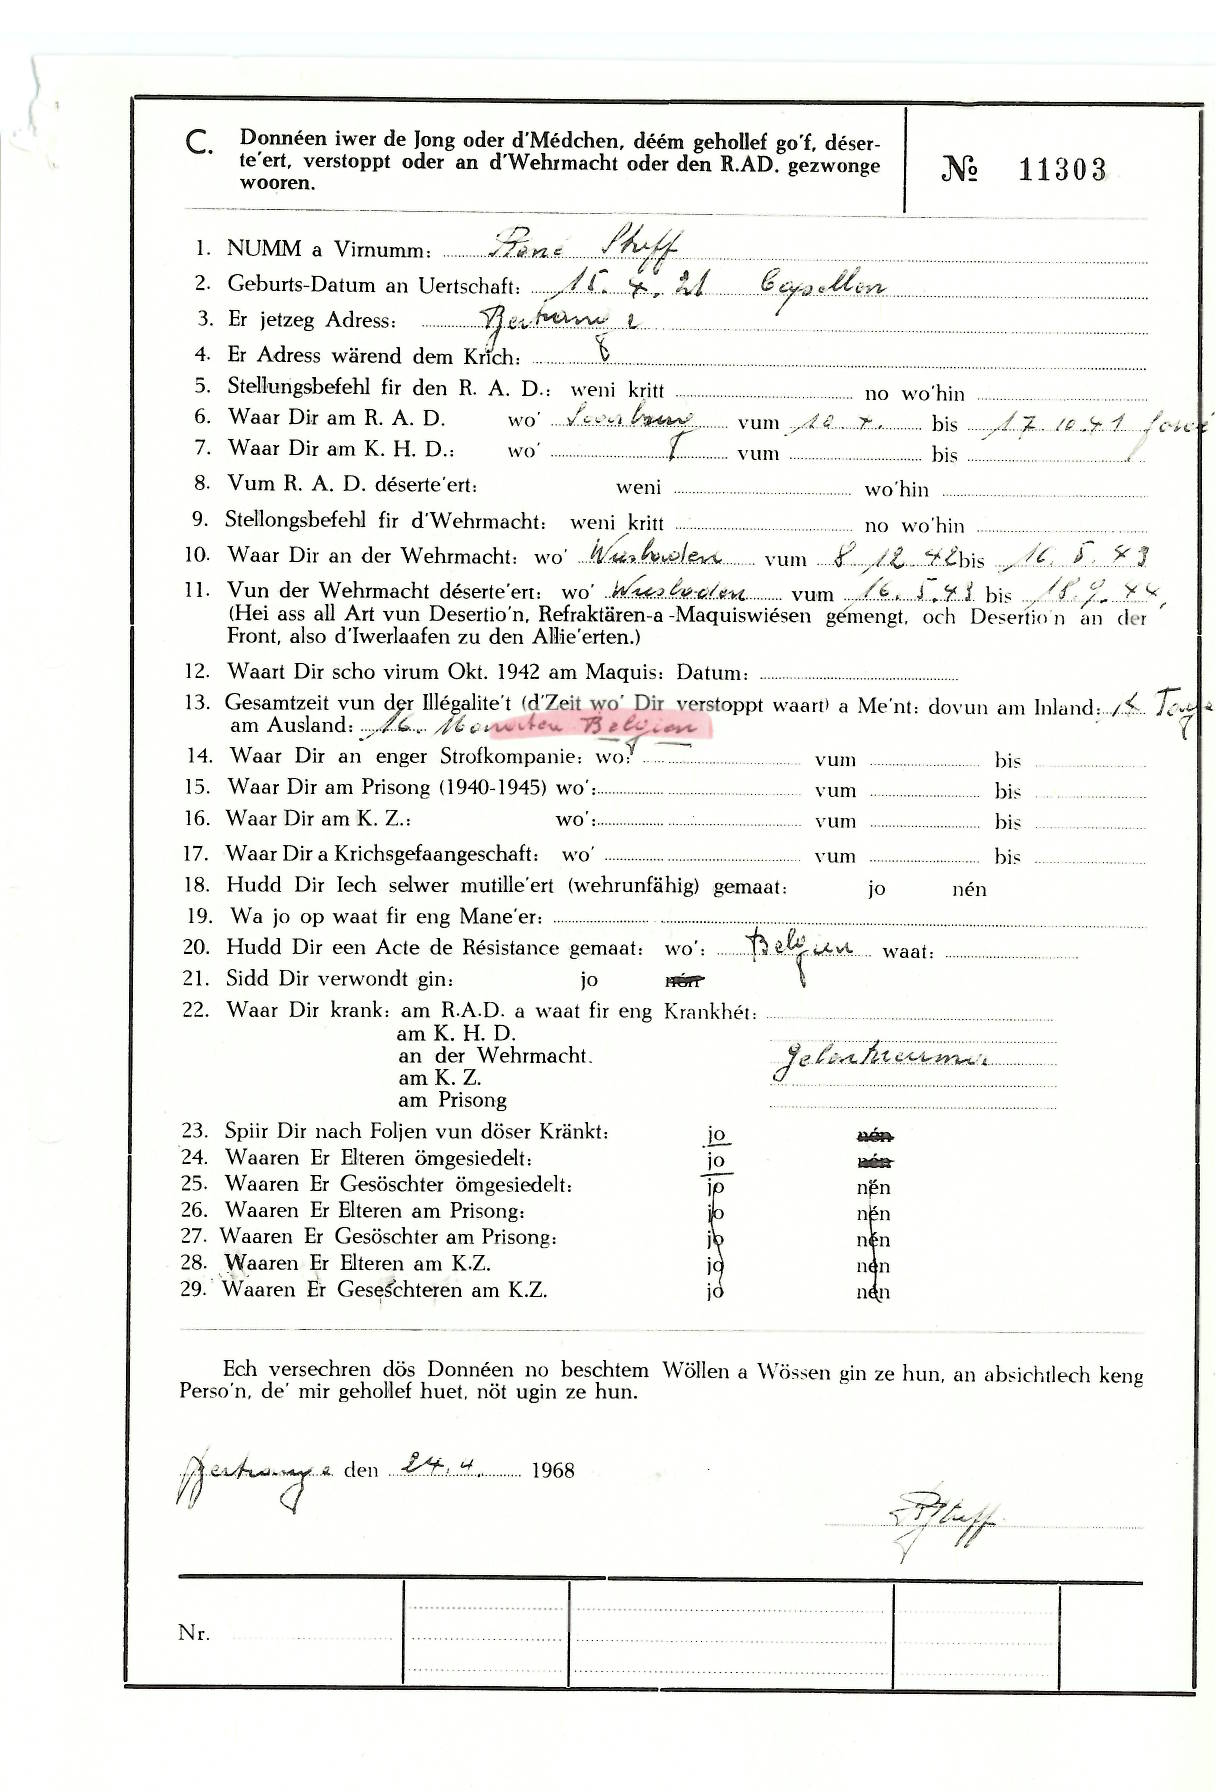 C. Donnéen iwer de Jong oder d'Médchen, déém gehollef go'f, déser-
te'ert, verstoppt oder an d'Wehrmacht oder den R.AD. gezwonge
wooren.
№ 11303
1. NUMM a Virnumm: René Steff
2. Geburts-Datum an Uertschaft: 15. 4. 21 Capellen
3. Er jetzeg Adress: Bertrange
4. Er Adress wärend dem Krich:
5. Stellungsbefehl fir den R. A. D.: weni kritt no wo'hin
6. Waar Dir am R. A. D. wo' vum bis 17.10.41
7. Waar Dir am K. H. D.: wo' vum bis
8. Vum R. A. D. déserte'ert: weni wo'hin
9. Stellongsbefehl fir d'Wehrmacht: weni kritt no wo'hin
10. Waar Dir an der Wehrmacht: wo' Wiesbaden vum 8 12 42 bis 16. 5. 43
11. Vun der Wehrmacht déserte'ert: wo' Wiesbaden vum 16. 5. 43 bis 18. 9. 44
(Hei ass all Art vun Desertio'n, Refraktären-a-Maquiswiésen gemengt, och Desertio'n an der
Front, also d'Iwerlaafen zu den Allie'erten.)
12. Waart Dir scho virum Okt. 1942 am Maquis: Datum:
13. Gesamtzeit vun der Illégalite't (d'Zeit wo' Dir verstoppt waart) a Me'nt: dovun am Inland: Tage
am Ausland: 16 Monaten Belgien
14. Waar Dir an enger Strofkompanie: wo: vum bis
15. Waar Dir am Prisong (1940-1945) wo': vum bis
16. Waar Dir am K. Z.: wo': vum bis
17. Waar Dir a Krichsgefaangeschaft: wo' vum bis
18. Hudd Dir Iech selwer mutille'ert (wehrunfähig) gemaat: jo nén
19. Wa jo op waat fir eng Mane'er:
20. Hudd Dir een Acte de Résistance gemaat: wo': Belgien waat:
21. Sidd Dir verwondt gin: jo nén
22. Waar Dir krank: am R.A.D. a waat fir eng Krankhét:
am K. H. D.
an der Wehrmacht.
am K. Z.
am Prisong
23. Spiir Dir nach Foljen vun döser Kränkt: jo nén
24. Waaren Er Elteren ömgesiedelt: jo nén
25. Waaren Er Gesöschter ömgesiedelt: jo nén
26. Waaren Er Elteren am Prisong: jo nén
27. Waaren Er Gesöschter am Prisong: jo nén
28. Waaren Er Elteren am K.Z. jo nén
29. Waaren Er Geseschteren am K.Z. jo nén
Ech versechren dös Donnéen no beschtem Wöllen a Wössen gin ze hun, an absichtlech keng
Perso'n, de' mir gehollef huet, nöt ugin ze hun.
Bertrange den 24. 4. 1968
RSteff
Nr.